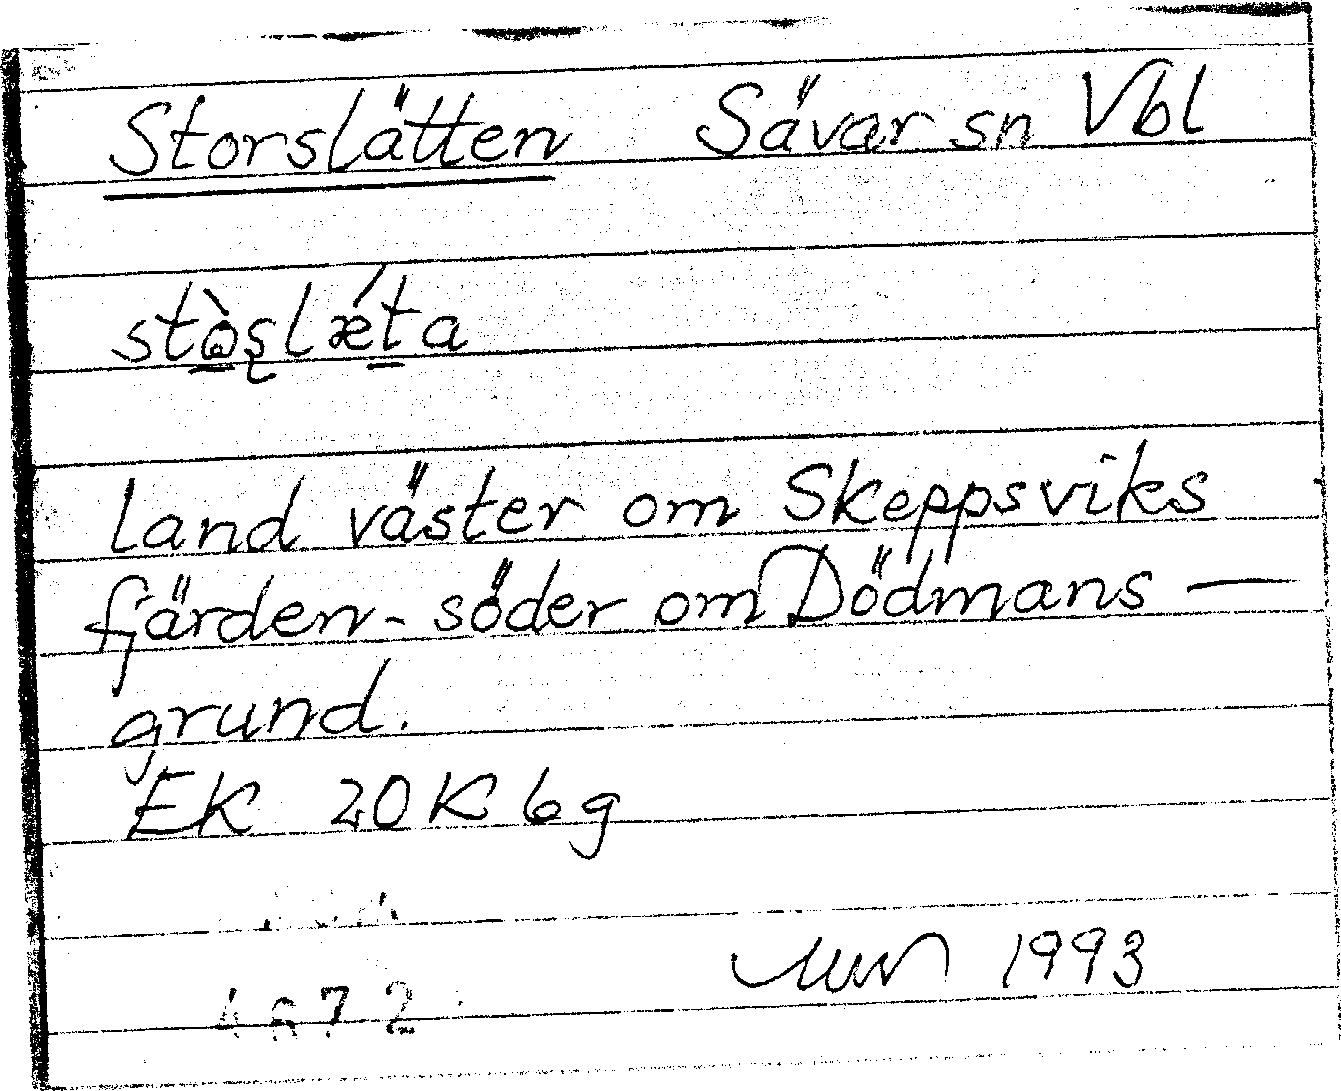 Storslätten Sävar sn Vbl
stò̱ʂlǽṯa
land väster om Skeppsviks
fjärden - söder om Dödmans -
grund.
EK 20K 6g
1993